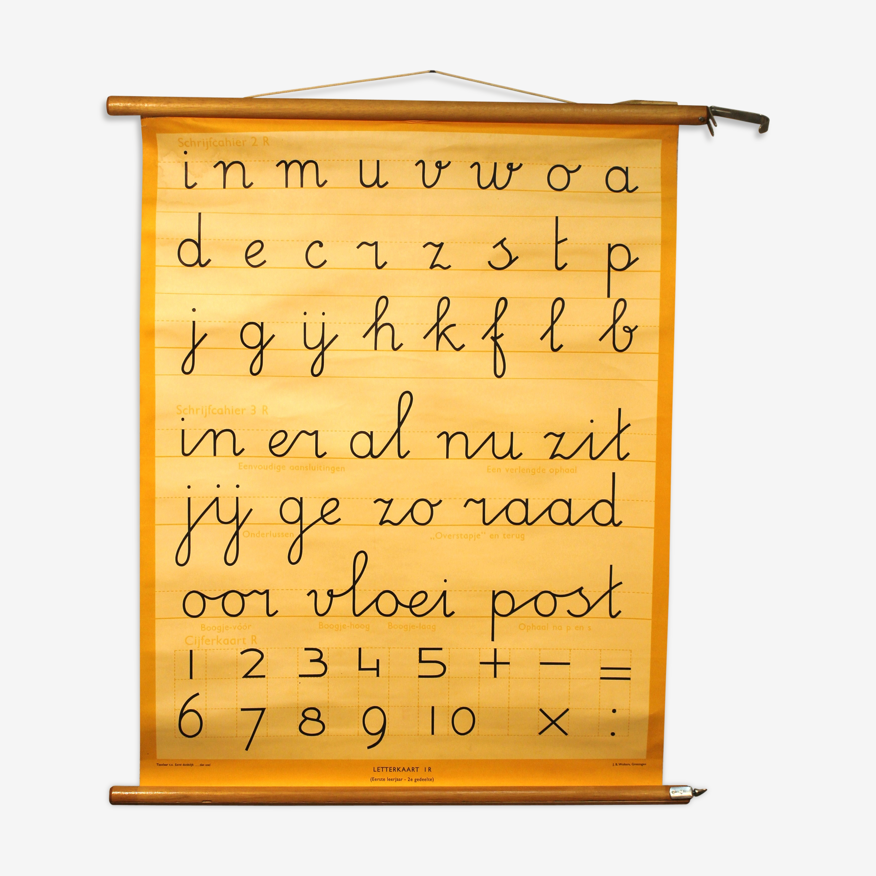 Schrijfcahier 2 R
i n m u v w o a
d e c r z s t p
j g ij h k f l b
Schrijfcahier 3 R
in er al nu zit
Eenvoudige aansluitingen Een verlengde ophaal
jij ge zo raad
Ondertussen „Overstapje” en terug
oor vloei post
Boogje-hoog Boogje-laag Ophaal na p en s
Cijferkaart R
1 2 3 4 5 + − =
6 7 8 9 10 × :
LETTERKAART 1R
(Eerste leerjaar - 2e gedeelte)